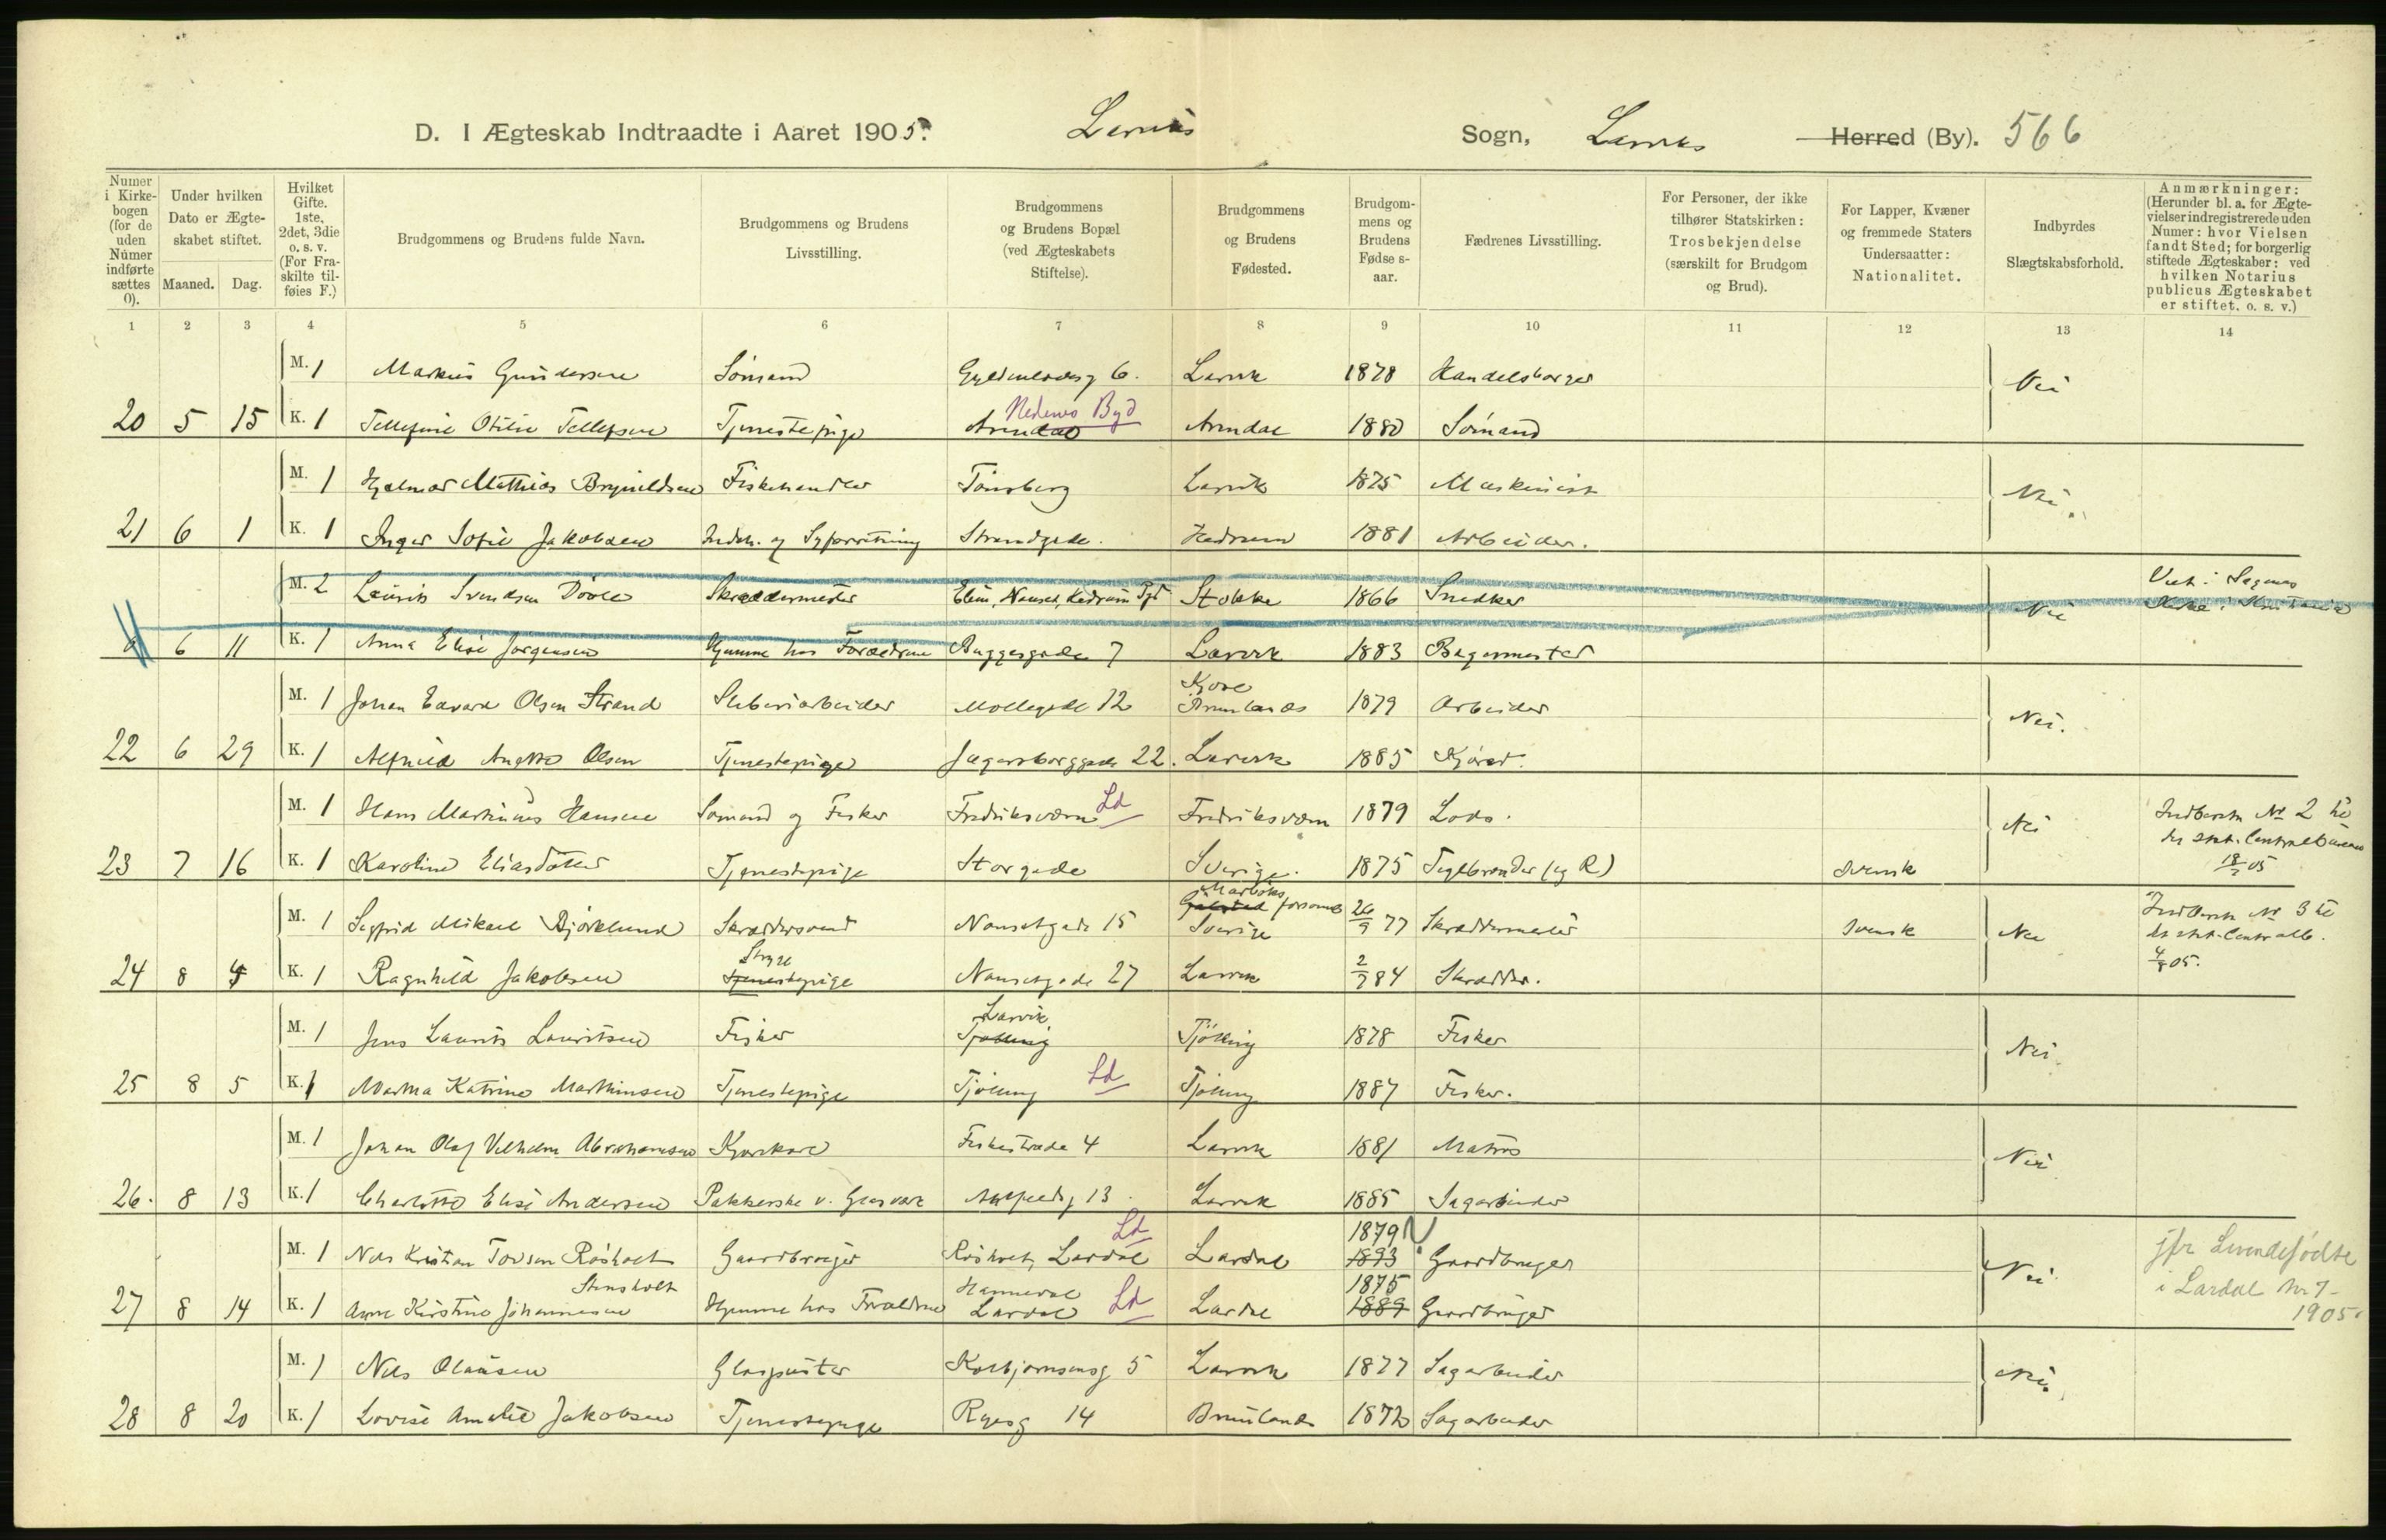 D. I Ægteskab Indtraadte i Aaret 1905. Larviks Sogn, Larviks Herred (By). 566
Numer i Kirkebogen (for de uden Númer indførte sættes 0).
Under hvilken Dato er Ægteskabet stiftet.
Maaned. Dag.
Hvilket Gifte. 1ste, 2det, 3die o. s. v. (For Fraskilte tilføies F.)
Brudgommens og Brudens fulde Navn.
Brudgommens og Brudens Livsstilling.
Brudgommens og Brudens Bopæl (ved Ægteskabets Stiftelse).
Brudgommens og Brudens Fødested.
Brudgommens og Brudens Fødse s-aar.
Fædrenes Livsstilling.
For Personer, der ikke tilhører Statskirken: Trosbekjendelse (særskilt for Brudgom og Brud).
For Lapper, Kvæner og fremmede Staters Undersaatter: Nationalitet.
Indbyrdes Slægtskabsforhold.
Anmærkninger: (Herunder bl. a. for Ægtevielser indregistrerede uden Numer: hvor Vielsen fandt Sted; for borgerlig stiftede Ægteskaber: ved hvilken Notarius publicus Ægteskabet er stiftet. o. s. v.)
1 2 3 4 5 6 7 8 9 10 11 12 13 14
M. 1 Markus Gundersen Sømand Gyldenløvesg 6. Larvik 1878 Handelsborger Nei
Nedenes Byd
20 5 15 K. 1 Tellefine Otilie Tellefsen Tjenestepige Arendal Arendal 1880 Sømand
M. 1 Hjalmar Mathias Brynildsen Fiskehandler Tønsberg Larvik 1875 Maskinist Nei.
21 6 1 K. 1 Inger Sofie Jakobsen Indeh. af Syforretning Strandgade. Hedrum 1881 Arbeider.
M. 2 Laurits Svendsen Skræddermester Nanset, Hedrum Stokke 1866 Snedker Nei
0 6 11 K. 1 Anna Elise Jørgensen Hjemme hos Forældrene Buggesgade 7 Larvik 1883 Bagermester
Kjose
M. 1 Johan Edvard Olsen Strand Sliberiarbeider Møllegade 12 Brunlanes 1879 Arbeider Nei.
22 6 29 K. 1 Alfhild Olsen Tjenestepige Jegersborggade 22. Larvik 1885 Kjører.
Ld
M. 1 Hans Martinius Hansen Sømand og Fisker Fredriksværn Fredriksværn 1879 Lods. Nei Indberetn No 2 til
det stat. Centralbureau
23 7 16 K. 1 Karoline Eliasdotter Tjenestepige Storgade Sverige. 1875 Teglbrænder (eg R) Svensk 18/7 05
M. 1 Sigfrid Mikael Björklund Skræddersvend Nansetgade 15 Sverige 26/9 77 Skræddermester Svensk Nei Indberetn No 3 til
det stat. Centralb.
4/8 05.
Stryge
24 8 4 K. 1 Ragnhild Jakobsen Tjenestepige Nansetgade 27 Larvik 2/7 84 Skrædder.
Larvik
M. 1 Jens Laurits Lauritsen Fisker Tjølling Tjølling 1878 Fisker Nei.
25 8 5 K. 1 Martha Katrine Marthinsen Tjenestepige Tjølling Ld Tjølling 1887 Fisker.
M. 1 Johan Olaf Vilhelm Abrahamsen Kjørekarl Fiskestræde 4 Larvik 1881 Matros Nei
26. 8 13 K. 1 Charlotte Elise Andersen Pakkerske v. Glasværk 13. Larvik 1885 Sagarbeider
Ld 1879
M. 1 Nils Kristian Tovsen Røsholt Gaardbruger Røsholt, Lardal Lardal 1893 Gaardbruger Nei jfr Levendefødte
i Lardal Nr 7-
1905.
Stensholt 1875
27 8 14 K. 1 Anne Kirstine Johannesen Hjemme hos Forældrene Lardal Ld Lardal 1889 Gaardbruger
M. 1 Nils Olausen Glaspuster Kolbjørnsensg 5 Larvik 1877 Sagarbeider Nei.
28 8 20 K. 1 Lovise Amalie Jakobsen Tjenestepige Ryesg 14 Brunlanes 1872 Sagarbeider